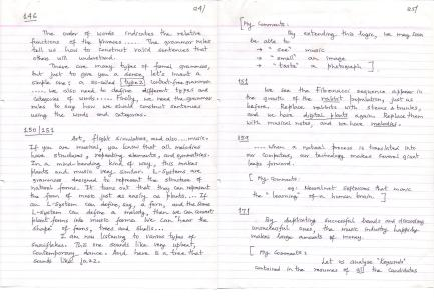 146
The order of words indicates the relative
functions of the phrases..... The grammar rules
tell us how to construct valid sentences that
others will understand.
There are many types of formal grammars,
but just to give you a sense, let's invent a
simple one: a so-called type 2 context-free grammar.
.... We also need to define different types and
categories of words..... Finally, we need the grammar
rules to say how we should construct sentences
using the words and categories.
150 151
Art, flight simulation, and also.....music.
If you are musical, you know that all melodies
have structures, repeating elements, and symmetries.
In a mind-bending kind of way, this makes
plants and music very similar. L-Systems are
grammars designed to represent the structure of
natural forms. It turns out that they can represent
the form of music just as easily as plants.... If
an L-System can define, say, a fern, and the same
L-System can define a melody, then we can convert
plant forms into music forms. We can hear the
shape of ferns, trees and shells...
I am now listening to various types of
snowflakes. This one sounds like very upbeat,
contemporary dance. And here is a tree that
sounds like jazz.
24/
25/
[ My Comments :
By extending this logic, we may soon
be able to
→ "see" music
→ "smell" an image
→ "taste" a photograph ]
151
We see the Fibonacci sequence appear in
the growth of the rabbit population, just as
before. Replace rabbits with stems & trunks,
and we have digital plants again. Replace them
with musical notes, and we have melodies.
159
..... When a natural process is translated into
our computers, our technology makes several giant
leaps forward.
[ My Comments :
eg: Neuralnet Softwares that mimic
the "learning" of a human brain. ]
171
By duplicating successful bands and discarding
unsuccessful ones, the music industry happily
makes large amounts of money.
[ My Comments :
Let us analyse "Keywords"
contained in the resumes of all the candidates